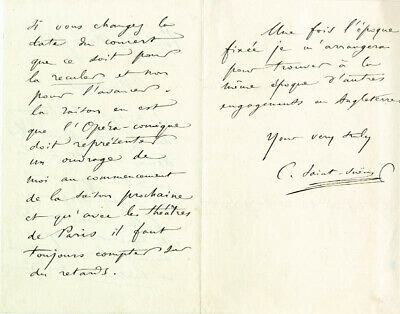 Si vous changez la
date du concert
que ce soit pour
la reculer et non
pour l'avancer.
La raison en est
que l'Opéra-comique
doit représenter
un ouvrage de
moi au commencement
de la saison prochaine
et qu'avec les théâtres
de Paris il faut
toujours compter sur
des retards.
Une fois l'époque
fixée je m'arrangerai
pour trouver à la
même époque d'autres
engagements en Angleterre
Your very truly
C. Saint-Saëns